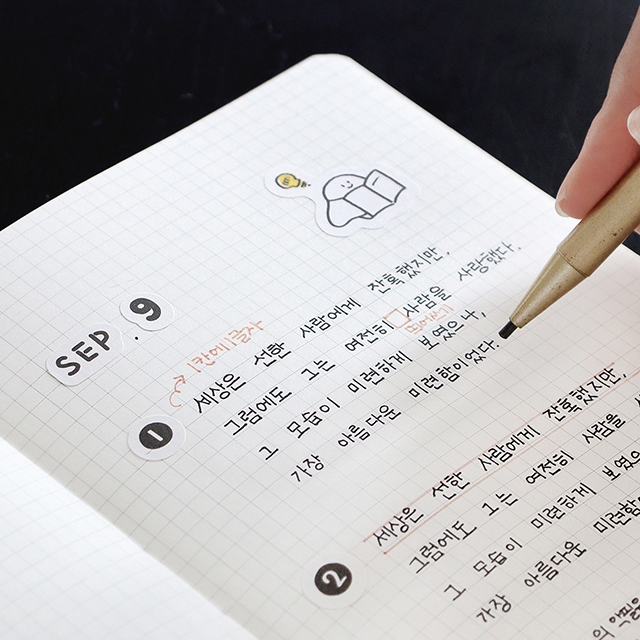 SEP. 9
1칸에 1글자
1
세상은 선한 사람에게 잔혹했지만,
그럼에도 그는 여전히 사람을 사랑했다.
띄어쓰기
그 모습이 미련하게 보였으나,
가장 아름다운 미련함이었다.
2
세상은 선한 사람에게 잔혹했지만,
그럼에도 그는 여전히 사람을
그 모습이 미련하게
가장 아름다운